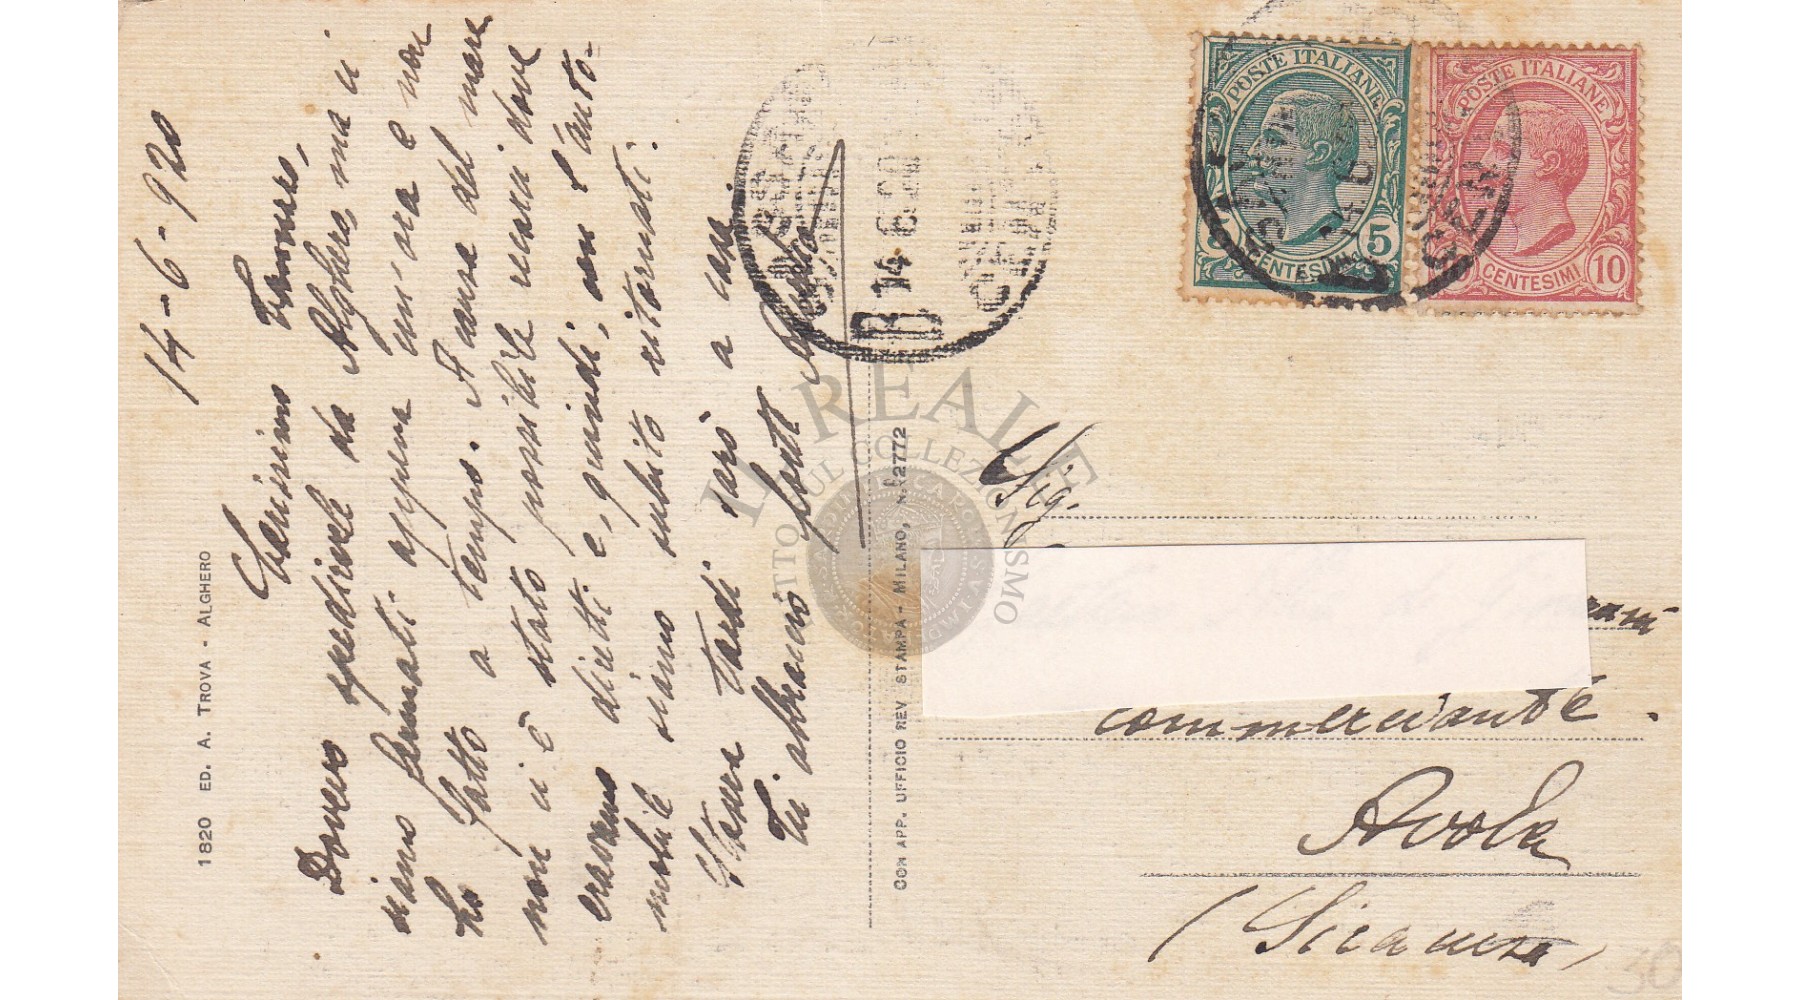 14-6-920
Carissimo
Dovevo spedirvele da Alghero, ma ci
siamo fermati appena un'ora e non
ho fatto a tempo. A causa del mare
non ci è stato possibile recarci dove
eravamo diretti e, quindi, con l'auto-
mobile siamo subito ritornati.
Stasera tardi sarò a casa
Ti abbraccio forte
1820 ED. A. TROVA - ALGHERO
CON APP. UFFICIO REV. STAMPA - MILANO, N. 2772
B 14 6
POSTE ITALIANE
5
CENTESIMI
POSTE ITALIANE
10
CENTESIMI
IL REALE
TUTTO SUL COLLEZIONISMO
Sig.
commerciante.
Avola
(Siracusa)
50